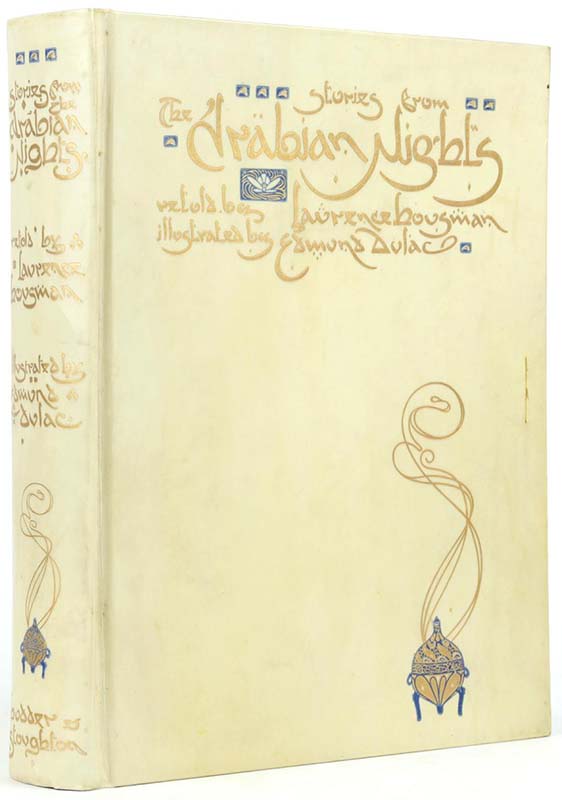 stories from
The Arabian Nights
retold by Laurence Housman
illustrated by Edmund Dulac
stories from
the
Arabian
Nights
retold by
Laurence
Housman
illustrated by
Edmund
Dulac
Hodder &
Stoughton